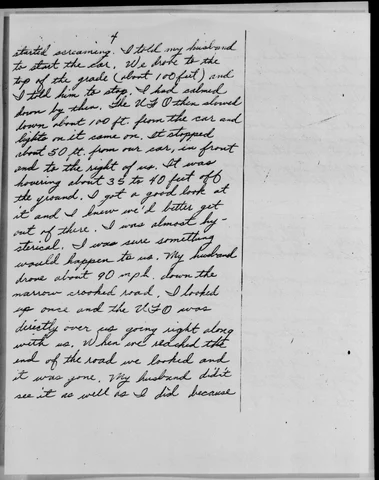 4
started screaming. I told my husband
to start the car. We drove to the
top of the grade (about 100 feet) and
I told him to stop. I had calmed
down by then. The UFO then slowed
down about 100 ft. from the car and
lights on it came on. It stopped
about 50 ft. from our car, in front
and to the right of us. It was
hovering about 35 to 40 feet off
the ground. I got a good look at
it and I knew we'd better get
out of there. I was almost hy-
sterical. I was sure something
would happen to us. My husband
drove about 90 mph. down the
narrow crooked road. I looked
up once and the UFO was
directly over us going right along
with us. When we reached the
end of the road we looked and
it was gone. My husband didn't
see it as well as I did because